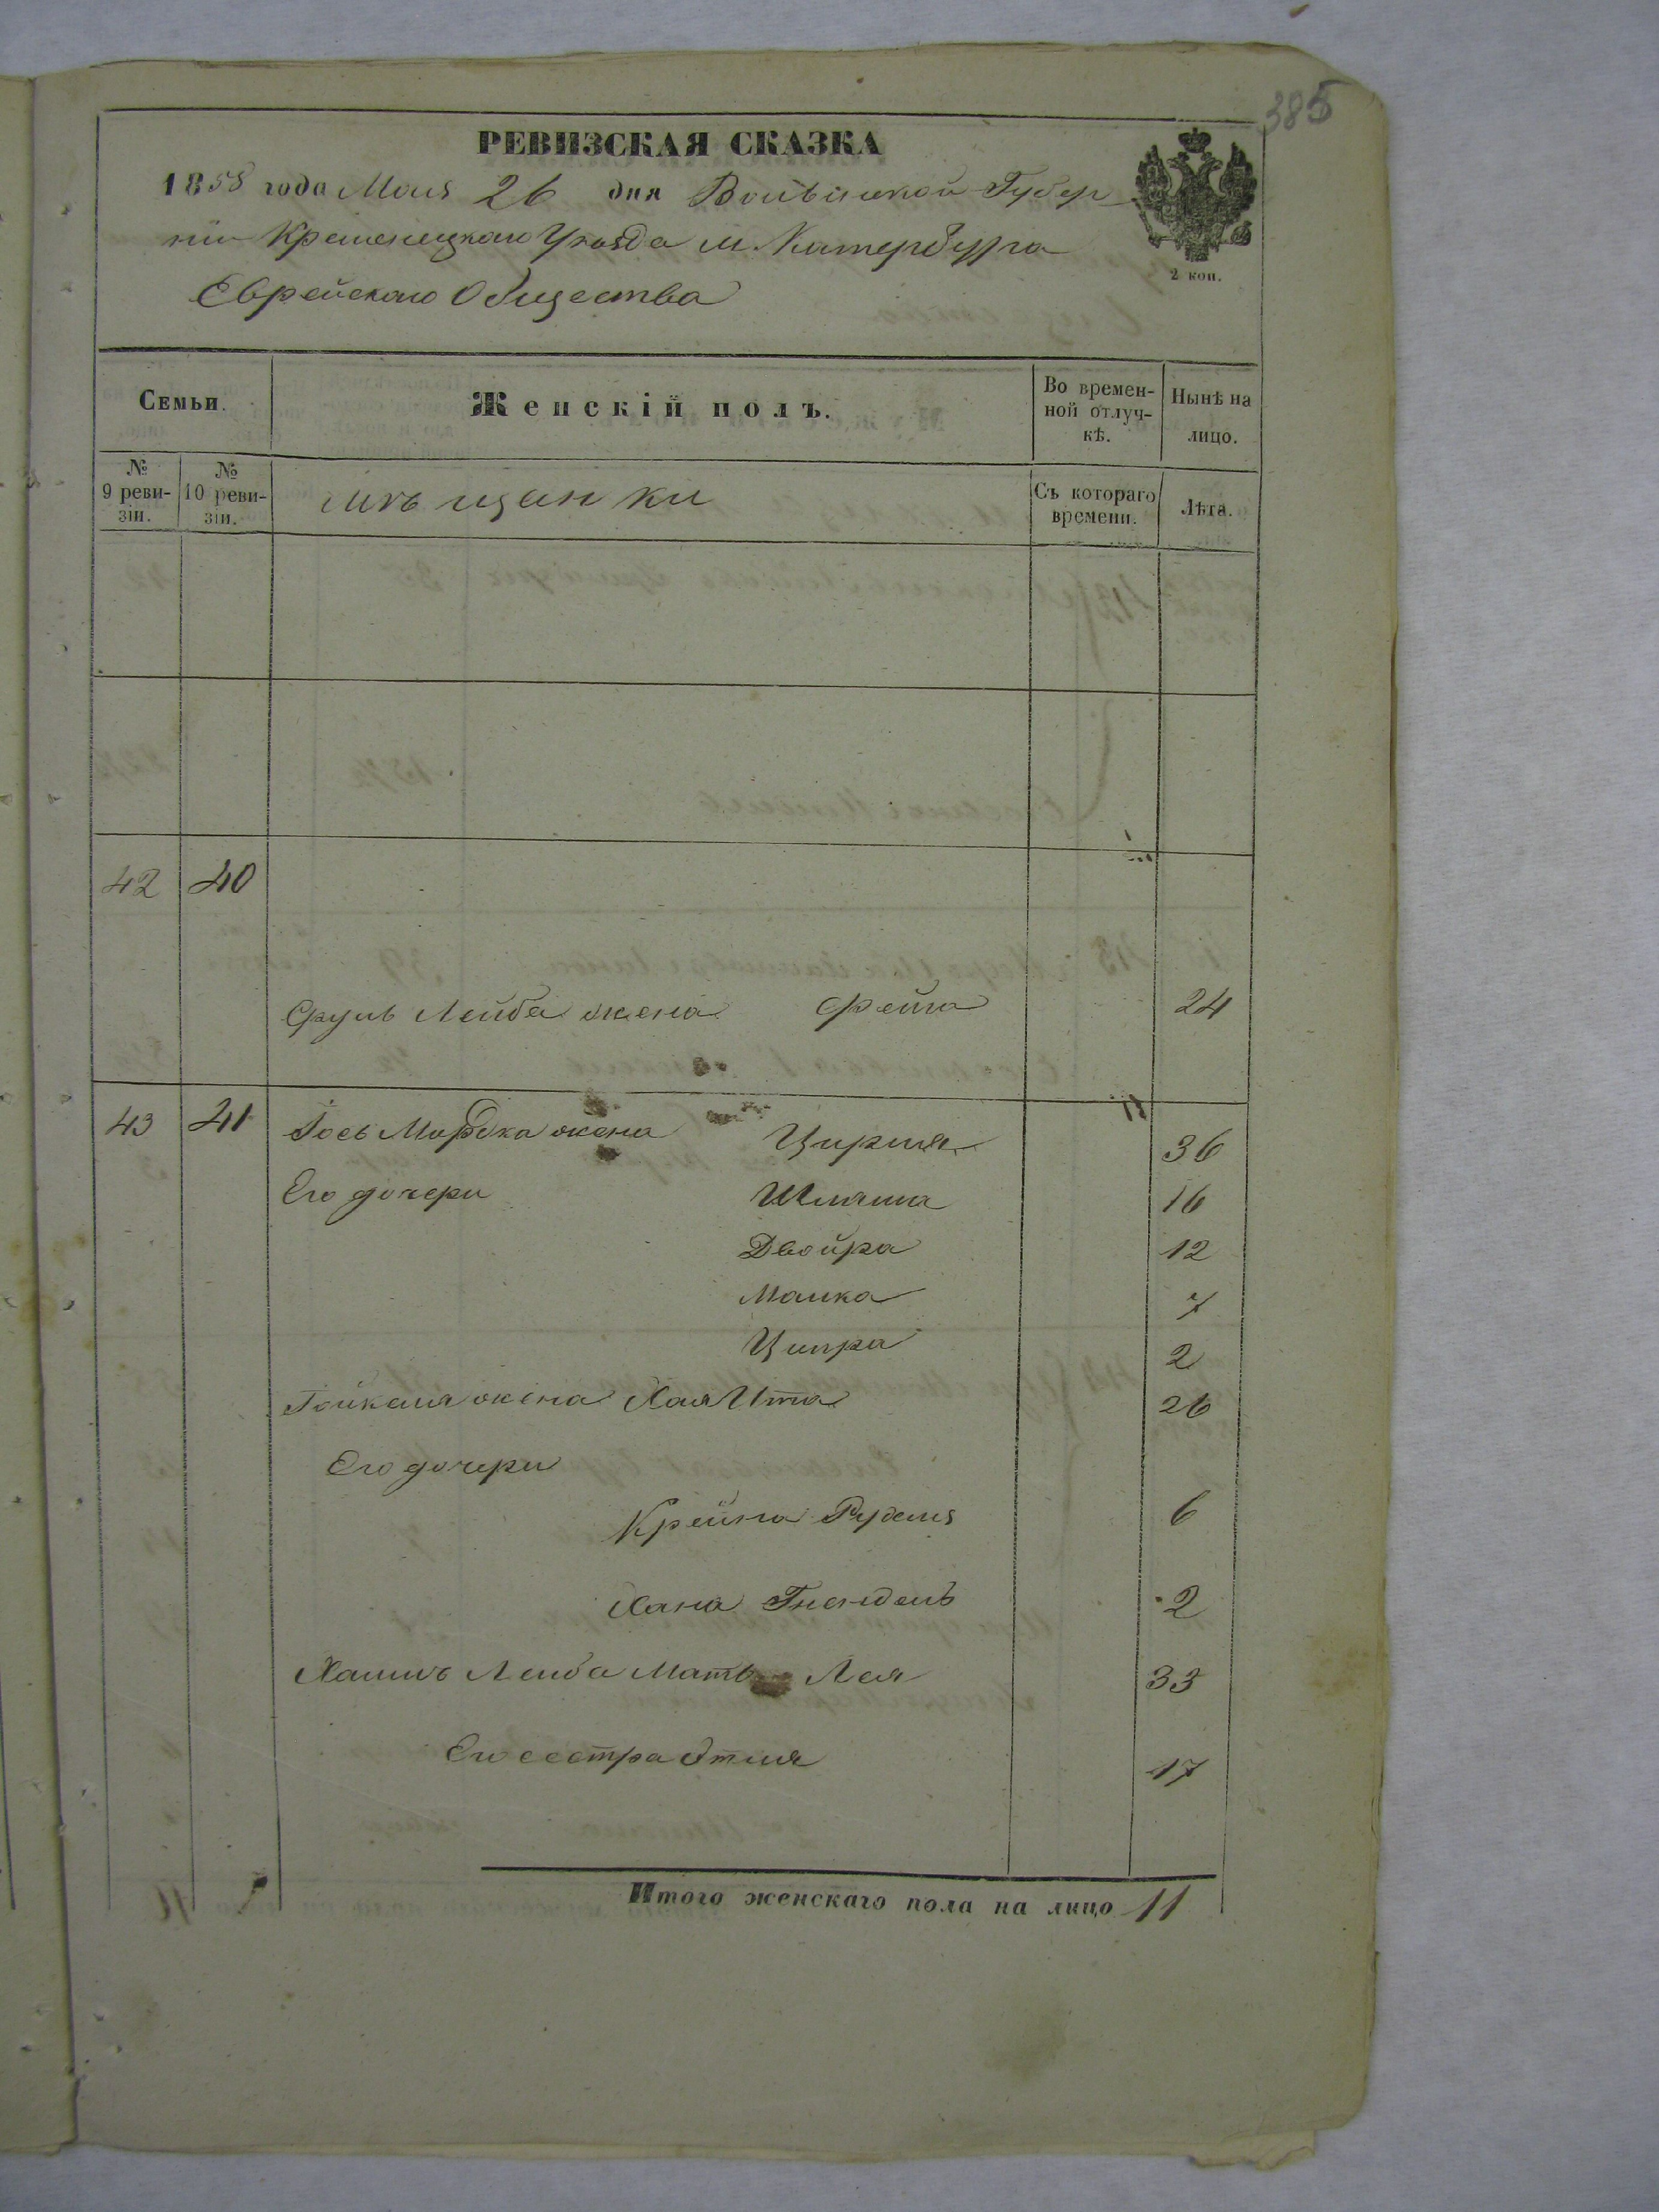 385
РЕВИЗСКАЯ СКАЗКА
1858 года Мая 26 дня Волынской Губер
ніи Кременецкаго Уѣзда м. Катербурга
Еврейскаго Общества
2 коп.
Семьи. Женскій полъ. Во времен-
ной отлуч-
кѣ. Нынѣ на
лицо.
№
9 реви-
зіи. №
10 реви-
зіи. мѣщанки Съ котораго
времени. Лѣта.
42 40
Сруль Лейба жена Фейга 24
43 41 Іось Мордка жена Цирля 36
Его дочери 16
Двойра 12
Малка 7
Ципра 2
жена Хая Ита 26
Его дочери
Крейна 6
Хана Гнендель 2
Лейба Мать Лея 33
Его сестра Этля 17
Итого женскаго пола на лицо 11